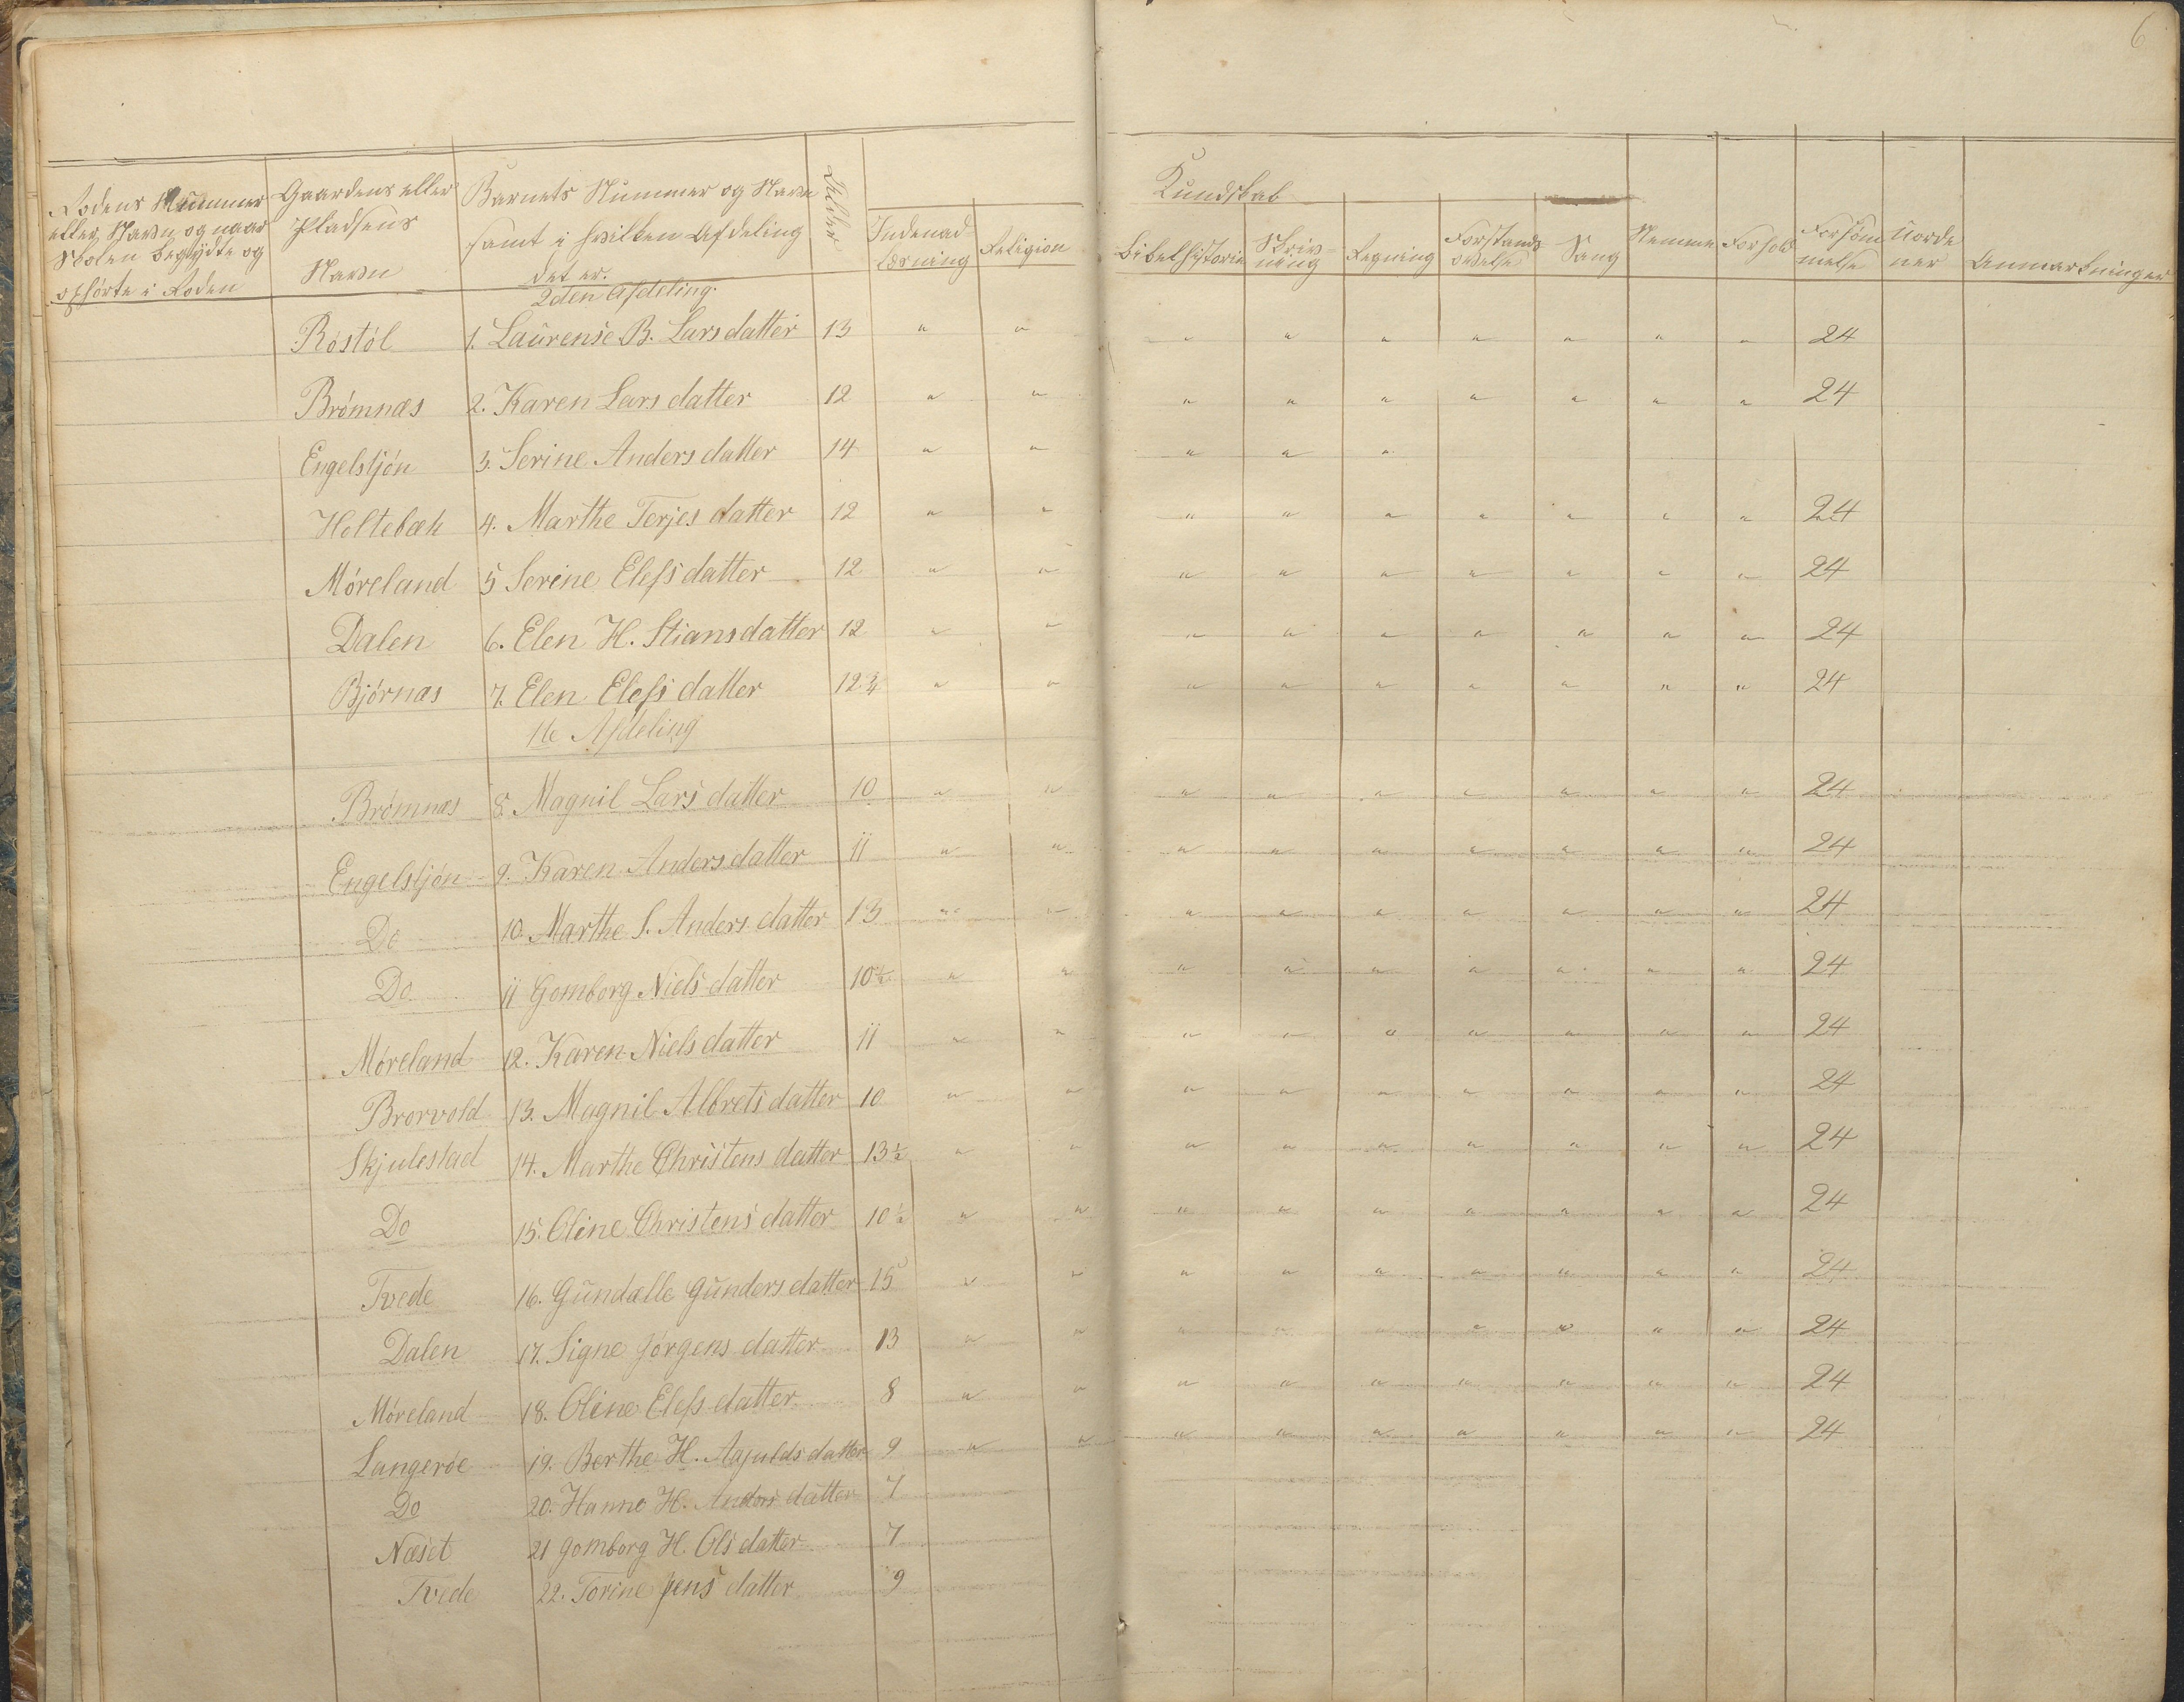 6
Rodens Nummer eller Navn og naar Skolen begyndte og ophørte i Roden | Gaardens eller Pladsens Navn | Barnets Nummer og Navn samt i hvilken Afdeling det er. | Alder | Indenadlæsning | Religion | Kundskab | Bibelhistorie | Skrivning | Regning | Forstands øvelse | Sang | Nemme | Forhold | Forsømmelse | Uordener | Anmærkninger
2den Afdeling.
Røstøl 1. Laurense B. Larsdatter 13 " " " " " " " " " 24
Brømnæs 2. Karen Larsdatter 12 " " " " " " " " " 24
Engelstjøn 3. Serine Andersdatter 14 " " " " "
Holtebæk 4. Marthe Terjesdatter 12 " " " " " " " " " 24
Møreland 5 Serine Elefsdatter 12 " " " " " " " " " 24
Dalen 6. Elen H. Stiansdatter 12 " " " " " " " " " 24
Bjørnæs 7. Elen Elefsdatter 12 3/4 " " " " " " " " " 24
1te Afdeling
Brømnæs 8. Magnil Larsdatter 10 " " " " " " " " " 24
Engelstjøn 9. Karen Andersdatter 11 " " " " " " " " " 24
Do 10. Marthe S. Andersdatter 13 " " " " " " " " " 24
Do 11 Gomborg Nielsdatter 10 1/2 " " " " " " " " " 24
Møreland 12. Karen Nielsdatter 11 " " " " " " " " " 24
Brorvold 13. Magnil Albretsdatter 10 " " " " " " " " " 24
Skjulestad 14. Marthe Christensdatter 13 1/2 " " " " " " " " " 24
Do 15. Oline Christensdatter 10 1/2 " " " " " " " " " 24
Tvede 16. Gundalle Gundersdatter 15 " " " " " " " " " 24
Dalen 17. Signe Jørgensdatter 13 " " " " " " " " " 24
Møreland 18. Oline Elefsdatter 8 " " " " " " " " " 24
Langerøe 19. Berthe H. Aajuldsdatter 9 " " " " " " " " " 24
Do 20. Hanne H. Andersdatter 7
Næset 21 Gomborg H. Olsdatter 7
Tvede 22. Torine Jensdatter 9